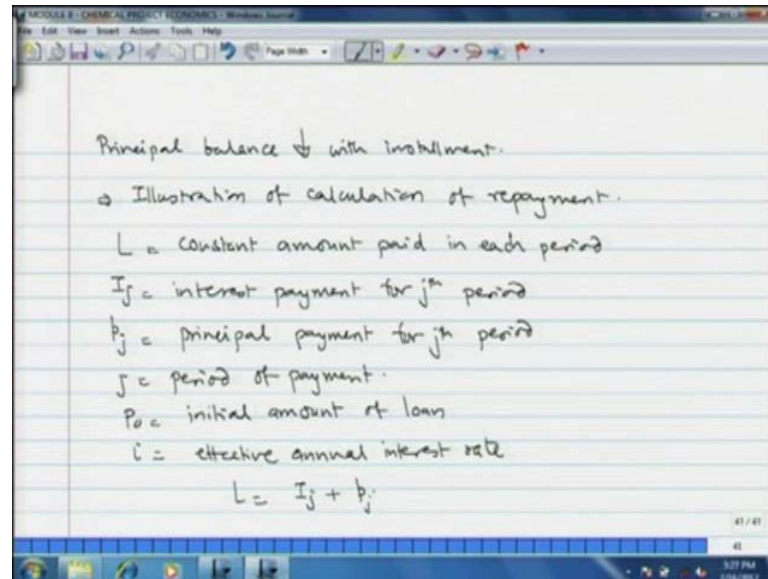 MODULE 8 - CHEMICAL PROJECT ECONOMICS - Windows Journal
File Edit View Insert Actions Tools Help
Page Width
Principal balance ↓ with installment.
⇒ Illustration of calculation of repayment.
L = constant amount paid in each period
Ij = interest payment for jth period
pj = principal payment for jth period
j = period of payment.
P0 = initial amount of loan
i = effective annual interest rate
L = Ij + pj
41 / 41
41
5:27 PM